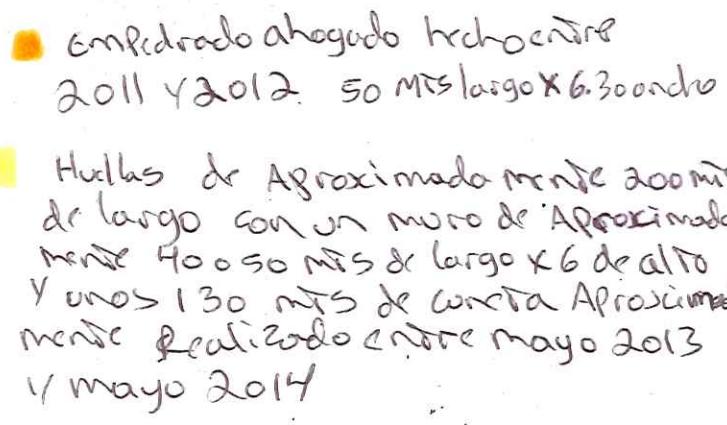 empedrado ahogado hecho entre
2011 y 2012. 50 mts largo x 6.30 ancho
Huellas de Aproximada mente 200 mt
de largo con un muro de Aproximada
mente 40 o 50 mts de largo x 6 de alto
y unos 130 mts de Aproxima
mente Realizado entre mayo 2013
y mayo 2014